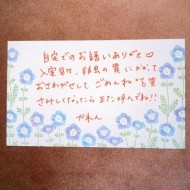 自宅でのお誘いありがと♡
入室早々、防虫の罠にかかって
おさわがせして ごめんね
さみしくなったら また呼んでね!!
かれん